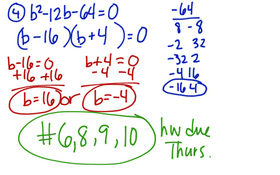 ④ b²-12b-64=0
(b-16)(b+4)=0
b-16=0 b+4=0
+16 +16 -4 -4
b=16 or b=-4
-64
8 -8
-2 32
-32 2
-4 16
-16 4
#6,8,9,10
hw due
Thurs.